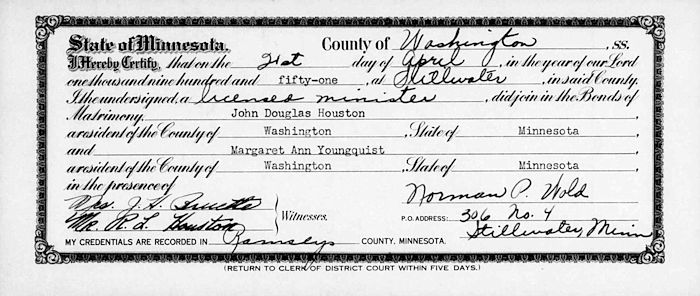 State of Minnesota. County of Washington, SS.
I Hereby Certify, that on the 21st day of April, in the year of our Lord
one thousand nine hundred and fifty-one, at Stillwater, in said County.
I the undersigned, a licensed minister, did join in the Bonds of
Matrimony, John Douglas Houston
a resident of the County of Washington, State of Minnesota
and Margaret Ann Youngquist
a resident of the County of Washington, State of Minnesota
in the presence of
Norman P. Wold
Mrs. J. A.
Mr. R. L. Houston Witnesses. P.O. ADDRESS: 306 No. 4
Stillwater, Minn
MY CREDENTIALS ARE RECORDED IN Ramsey COUNTY, MINNESOTA.
(RETURN TO CLERK OF DISTRICT COURT WITHIN FIVE DAYS.)